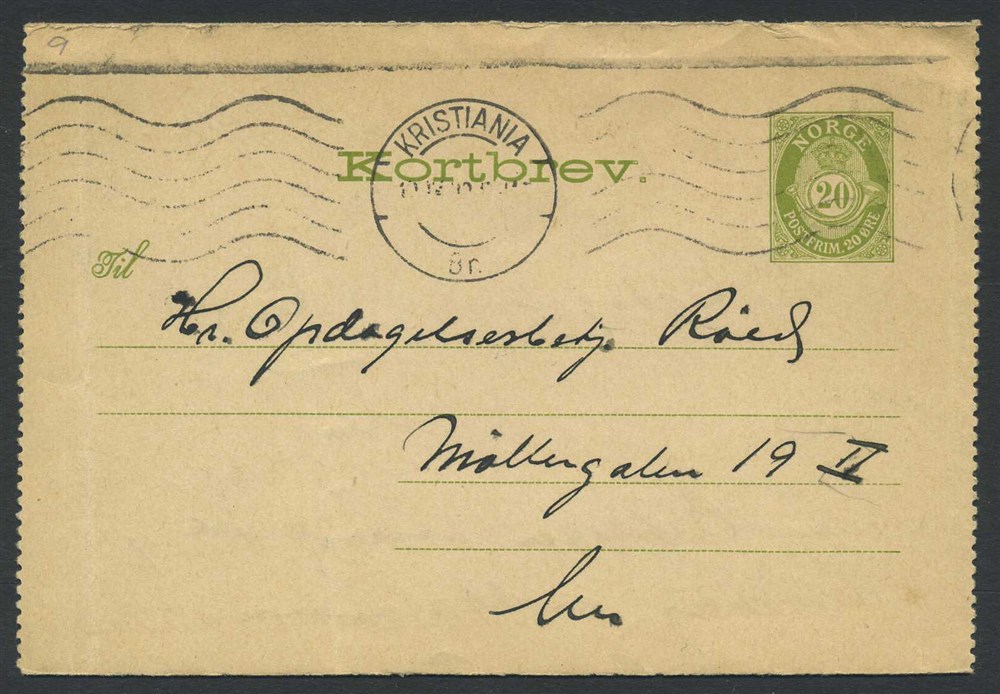 9
KRISTIANIA
Br.
Kortbrev.
NORGE
20
POSTFRIM. 20 ØRE
Til
Hr. Opdagelsesbetj. Röed
Møllergaten 19 II
her